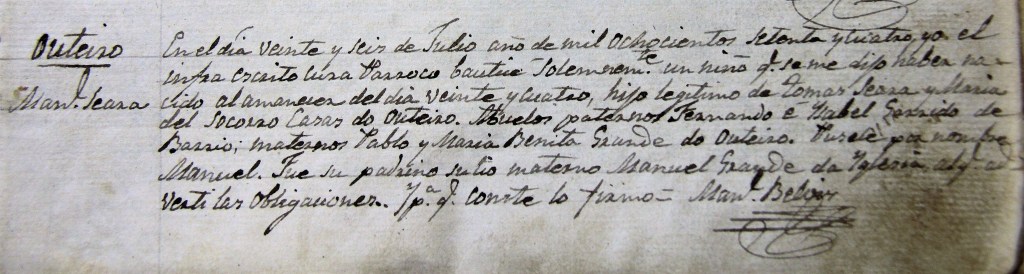 Outeiro
Man.l Seara
En el dia veinte y seis de Julio año de mil ochocientos setenta y cuatro, yo el
infra escrito cura Parroco bautice Solemnem.te un niño q.e se me dijo haber na-
cido al amanecer del dia veinte y cuatro, hijo legitimo de Tomas Seara y Maria
del Socorro Casas do Outeiro. Abuelos paternos Fernando é Isabel Garrido de
Barrio; maternos Pablo y Maria Benita Grande do Outeiro. Pusele por nombre
Manuel. Fue su padrino su tio materno Manuel Grande da Yglesia, al q.e ad
verti las obligaciones. Y p.a q.e conste lo firmo = Man.l